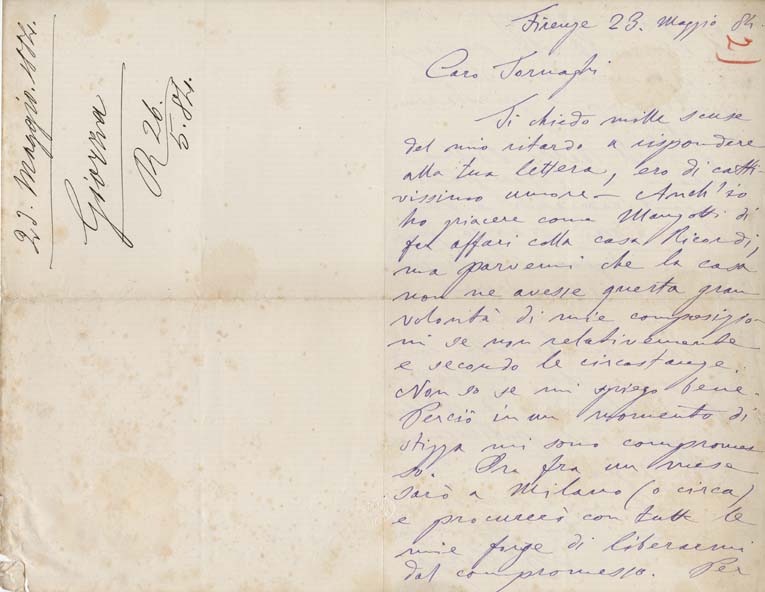 23. Maggio. 1884.
Giorza
R 26.
5.84.
Firenze 23. Maggio 84.
Caro Tornaghi
Ti chiedo mille scuse
del mio ritardo a rispondere
alla tua lettera, ero di catti-
vissimo umore – Anch'io
ho piacere come Manzotti di
far affari colla casa Ricordi,
ma parvemi che la casa
non ne avesse questa gran
volontà di mie composizio-
ni se non relativamente
e secondo le circostanze.
Non so se mi spiego bene.
Perciò in un momento di
stizza mi sono compromes-
so. Ora fra un mese
sarò a Milano (o circa)
e procurerò con tutte le
mie forze di liberarmi
dal compromesso. Per